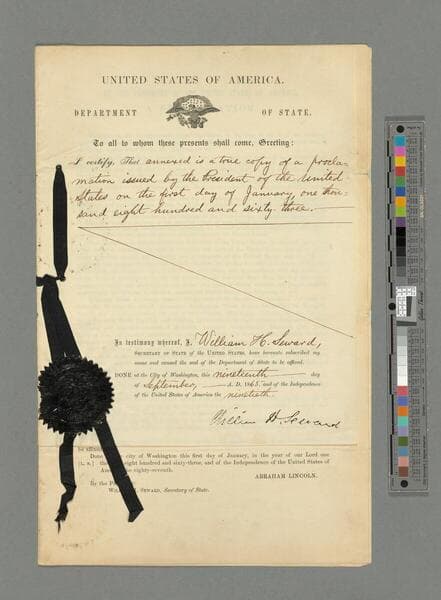 UNITED STATES OF AMERICA.
DEPARTMENT OF STATE.
To all to whom these presents shall come, Greeting:
I certify, That annexed is a true copy of a procla-
mation issued by the President of the United
States on the first day of January, one thou-
sand eight hundred and sixty-three.
In testimony whereof, I, William H. Seward,
SECRETARY OF STATE OF THE UNITED STATES, have hereunto subscribed my
name and caused the seal of the Department of State to be affixed.
DONE at the City of Washington, this nineteenth day
of September, A. D. 1865, and of the Independence
of the United States of America the ninetieth.
William H. Seward
be affixed
Done city of Washington this first day of January, in the year of our Lord one
[L. S.] eight hundred and sixty-three, and of the Independence of the United States of
eighty-seventh.
ABRAHAM LINCOLN.
By the
SEWARD, Secretary of State.